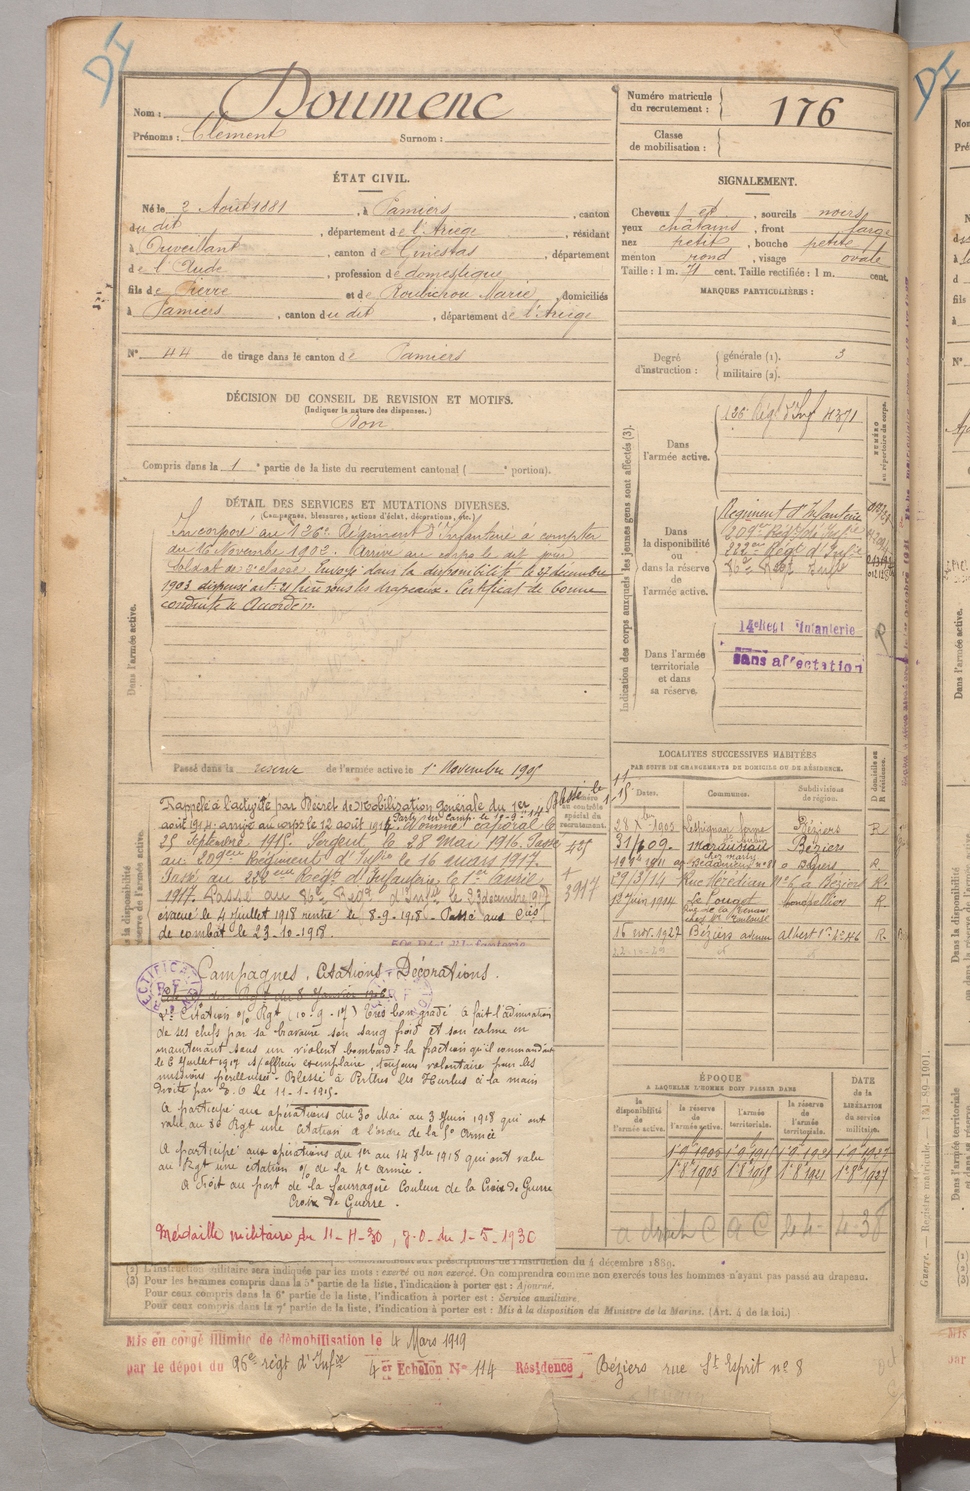 DI
Nom : Doumenc
Prénoms : Clément Surnom :
Numéro matricule du recrutement : 176
Classe de mobilisation :
ÉTAT CIVIL.
Né le 2 Août 1881, à Pamiers, canton
du dit, département de l'Ariège, résidant
à Ouveillant, canton de Ginestas, département
de l'Aude, profession de domestique
fils de Pierre et de Roubichou Marie, domiciliés
à Pamiers, canton du dit, département de l'Ariège
N° 44 de tirage dans le canton de Pamiers
SIGNALEMENT.
Cheveux et, sourcils noirs
yeux châtains, front large
nez petit, bouche petite
menton rond, visage ovale
Taille : 1 m. 71 cent. Taille rectifiée : 1 m. cent.
MARQUES PARTICULIÈRES :
Degré d'instruction : générale (1). 3
militaire (2).
DÉCISION DU CONSEIL DE REVISION ET MOTIFS.
(Indiquer la nature des dispenses.)
Bon
Compris dans la 1e partie de la liste du recrutement cantonal ( e portion).
DÉTAIL DES SERVICES ET MUTATIONS DIVERSES.
(Campagnes, blessures, actions d'éclat, décorations, etc.)
Incorporé au 126e Régiment d'Infanterie à compter
du 16 Novembre 1902. Arrivé au corps le dit jour
Soldat de 2e classe. Envoyé dans la disponibilité le 27 décembre
1903 dispensé art. 21 lieu sous les drapeaux. Certificat de bonne
conduite "Accordé".
Dans l'armée active.
Passé dans la réserve de l'armée active le 1er Novembre 1905
Indication des corps auxquels les jeunes gens sont affectés (3).
Dans l'armée active.
126e Rég. d'Inf. 4371
NUMÉRO au répertoire du corps.
Dans la disponibilité ou dans la réserve de l'armée active.
Régiment d'Infanterie
209e Régt de Infie
222e Régt d'Infie
86e Régt Infie
Dans l'armée territoriale et dans sa réserve.
14e Régt Infanterie
Sans affectation
Rappelé à l'activité par Décret de Mobilisation générale du 1er
août 1914. arrivé au corps le 12 août 1914. Parti en camp. le 10-9-14 Nommé caporal le
25 Septembre 1915. Sergent le 28 mai 1916. Passé
au 209eme Régiment d'Infie le 16 mars 1917.
Passé au 222eme Régt d'Infanterie le 1er avril
1917. Passé au 86e Régt d'Inf. le 23 décembre 1917
évacué le 4 Juillet 1918 rentré le 8-9-1918.
de combat le 23-10-1918.
Blessé le
LOCALITÉS SUCCESSIVES HABITÉES
PAR SUITE DE CHANGEMENTS DE DOMICILE OU DE RÉSIDENCE.
Dates. Communes. Subdivisions de région. D domicile ou R résidence.
28 Xbre 1903 Béziers R
31/ 09. maraussan Béziers
1911 R.
29/3/14 Rue Méridien N° 6 à Béziers R.
13 Juin 1914 Le Pouget Montpellier R
16 nov. 1927 Béziers avenue albert 1er n° 46 R.
Campagnes, Citations, Décorations.
RECTIFICATION
R F
Citation O/ Rgt (10-9-17) Très bon gradé à fait l'admiration
de ses chefs par sa bravoure son sang froid et son calme en
maintenant sous un violent bombardt la fraction qu'il commandait
le 6 Juillet 1917 S/officier exemplaire, toujours volontaire pour les
missions périlleuses. Blessé à Perthes les Hurlus à la main
droite par E.O le 11-1-1915.
A participé aux opérations du 30 Mai au 3 Juin 1918 qui ont
valu au 86 Rgt une citation à l'ordre de la 5e Armée
A participé aux opérations du 1er au 14 8bre 1918 qui ont valu
au Rgt une citation O/ de la 4e Armée.
A droit au port de la fourragère Couleur de la Croix de Guerre
Croix de Guerre.
Médaille militaire du 11-4-30, J.O. du 1-5-1930
ÉPOQUE
A LAQUELLE L'HOMME DOIT PASSER DANS
la disponibilité de l'armée active. la réserve de l'armée active. l'armée territoriale. la réserve de l'armée territoriale.
DATE de la LIBÉRATION du service militaire.
1er 9 1905 1er 9 1921 1er 9 1927
1er 8 1905 1er 8 1918 1er 8 1921 1er 8 1927
a droit C A C
(2) L'instruction militaire sera indiquée par les mots : exercé ou non exercé. On comprendra comme non exercés tous les hommes n'ayant pas passé au drapeau.
(3) Pour les hommes compris dans la 5e partie de la liste, l'indication à porter est : Ajourné.
Pour ceux compris dans la 6e partie de la liste, l'indication à porter est : Service auxiliaire.
Pour ceux compris dans la 7e partie de la liste, l'indication à porter est : Mis à la disposition du Ministre de la Marine. (Art. 4 de la loi.)
Mis en congé illimité de démobilisation le 4 Mars 1919
par le dépôt du 96e régt d'Infie 4er Echelon N° 114 Résidence Béziers rue St Esprit n° 8